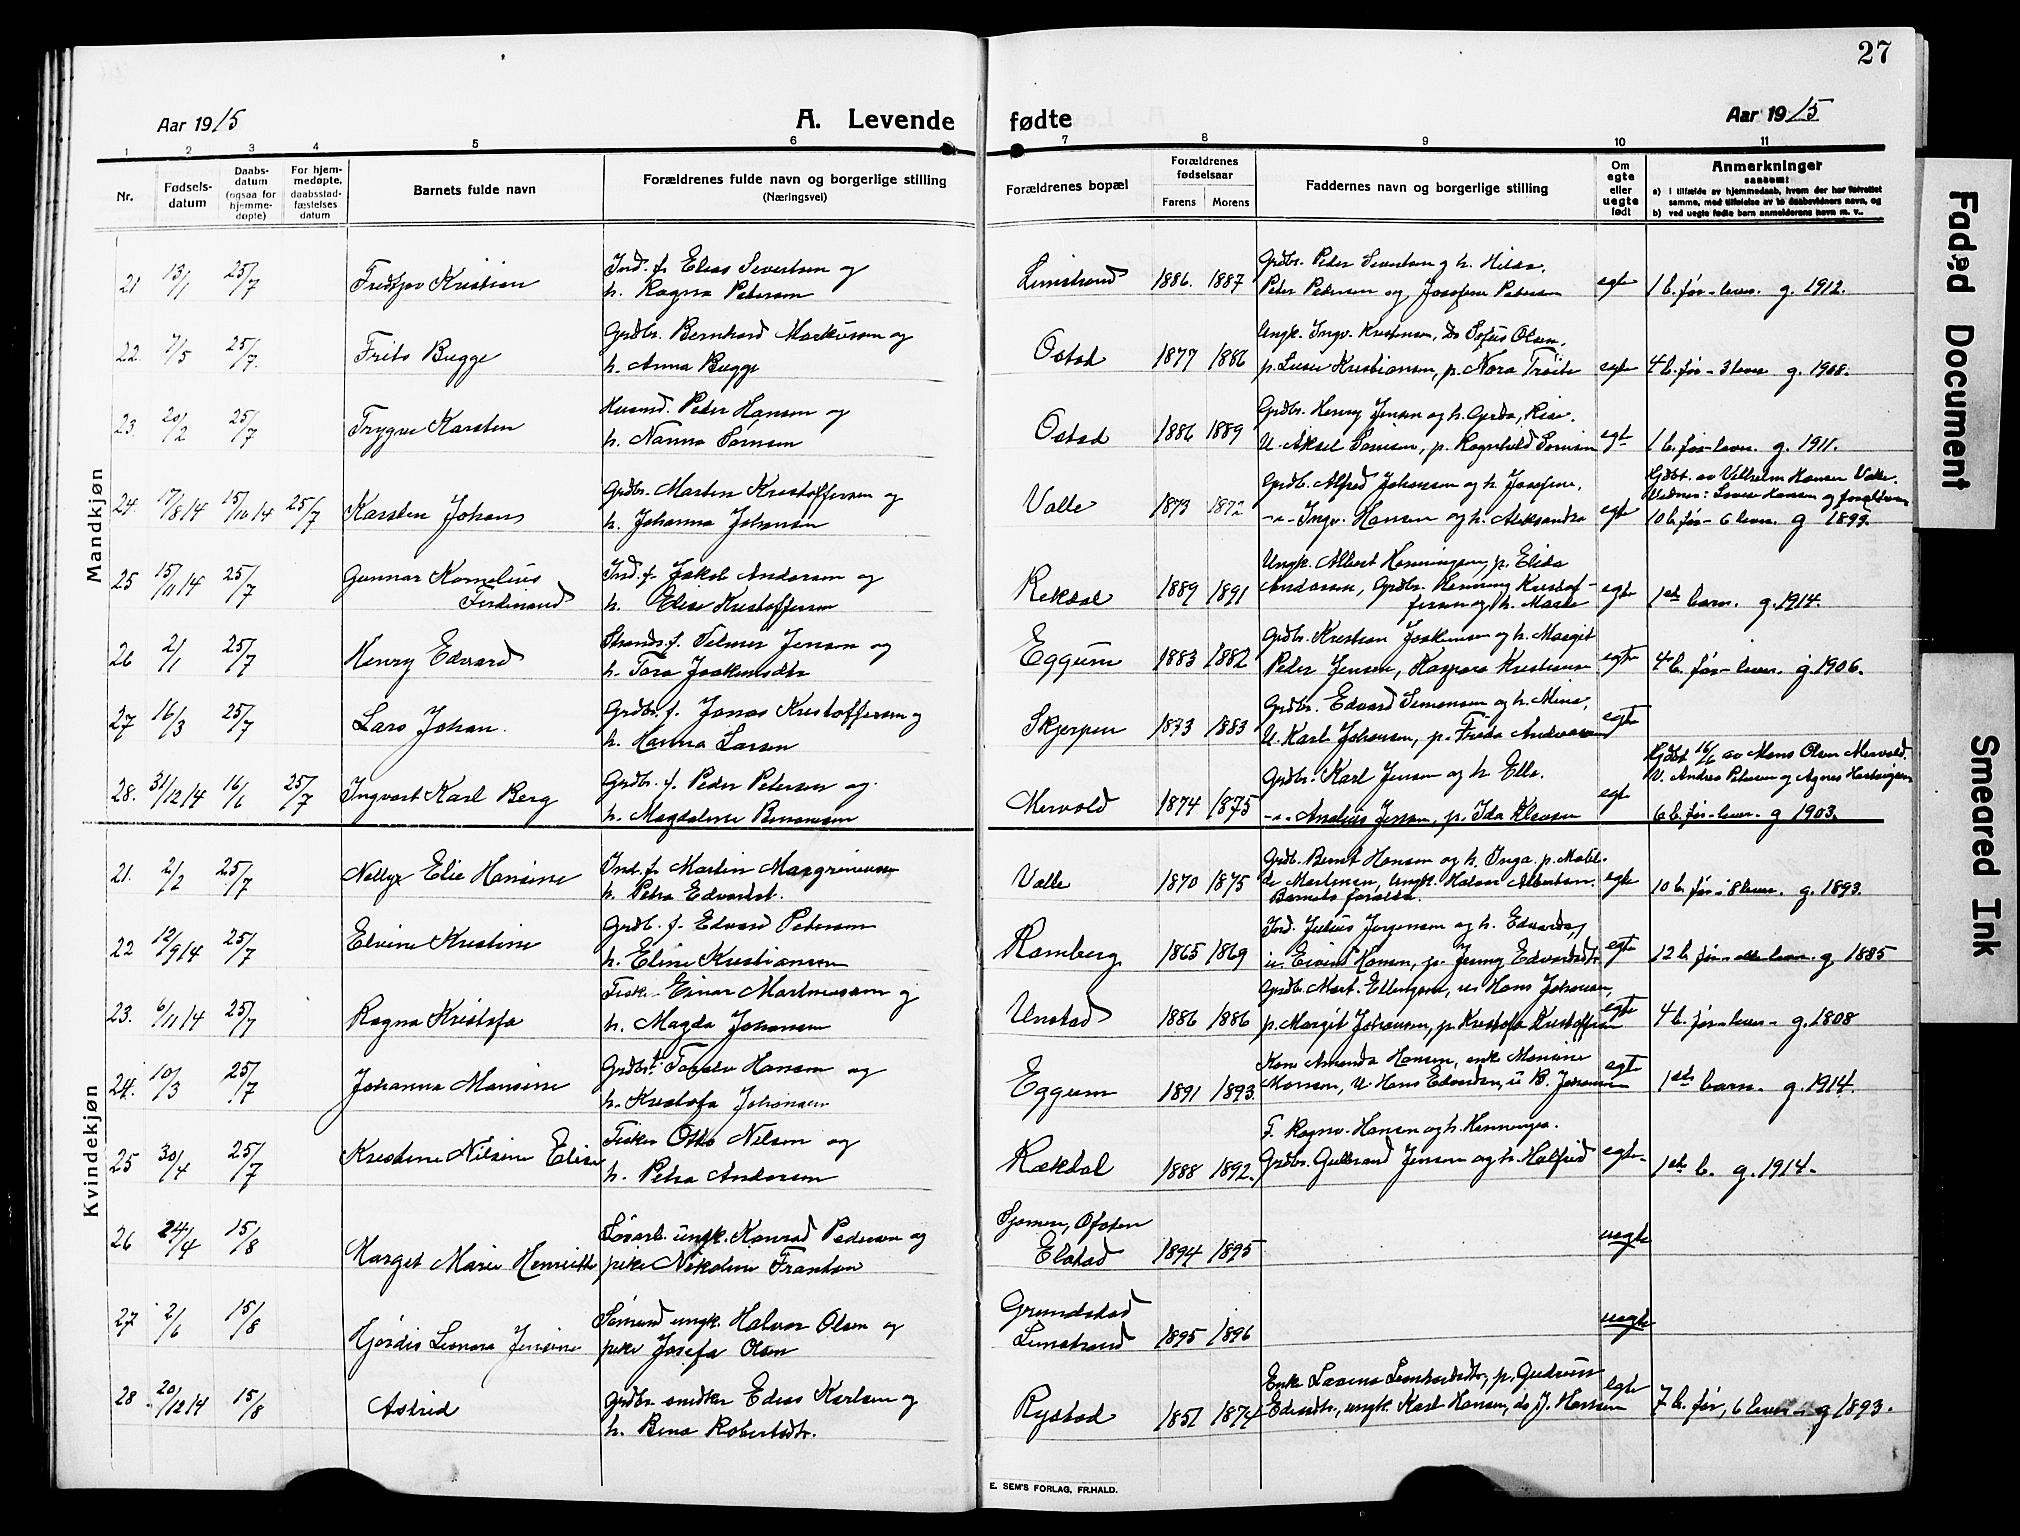 27
Aar 1915
A. Levende fødte
Aar 1915
1 2 3 4 5 6 7 8 9 10 11
Nr.
Fødsels-
datum
Daabs-
datum
(ogsaa for
hjemme-
døpte)
For hjem-
medøpte,
daabsstad-
fæstelses
datum
Barnets fulde navn
Forældrenes fulde navn og borgerlige stilling
(Næringsvei)
Forældrenes bopæl
Forældrenes
fødselsaar
Farens Morens
Faddernes navn og borgerlige stilling
Om
egte
eller
uegte
født
Anmerkninger
saasom:
a) i tilfælde av hjemmedaab, hvem der har forrettet
samme, med tilføielse av to daabsvidners navn, og
b) ved uegte fødte barn anmelderens navn m. v..
Mandkjøn
21 13/1 25/7 Fredtjov Kristian
Ind. f. Elias Severtsen og
h. Ragna Petersen
Limstrand 1886. 1887
Grdbr. Peder Sivertsen og h. Hilda,
Peter Pedersen og Josefine Petersen
egte 1 b. før - lever. g. 1912.
22. 7/5 25/7. Frits Bugge
Grdbr. Bernhard Markussen og
h. Anna Bugge
Ostad 1877 1886
Ungk. Ingv. Kristensen, do Sofus Olsen,
p. Luise Kristiansen, p. Nora Tröite
egte 4 b. før - 3 lever g. 1908.
23. 20/2 25/7 Trygve Karsten
Husmd. Peder Hansen og
h. Nanna Sørnsen
Ostad 1886 1889
Grdbr. Henry Jensen og h. Gerda, Rise.
U. Aksel Sørnsen, p. Ragnhild Sørnsen
egte 1 b. før - lever. g. 1911.
24. 17/8 14 15/10 14 25/7 Karsten Johans
Grdbr. Martin Kristoffersen og
h. Johanna Johansen
Valle 1873 1872
Grdb. Alfred Johansen og h. Josefine,
-"- Ingv. Hansen og h. Aleksandra
egte
Hjdbt. av Vilhelm Hansen Valle.
Vidner: Lovise Hansen og forældrene
10 b. før - 6 lever. g 1893.
25 15/11 14 25/7 Gunnar Kornelius
Ferdinand
Ind. f. Jakob Andersen og
h. Elise Kristoffersen
Rekdal 1889 1891
Ungk. Albert Henningsen, p. Elida
Andersen, Grdbr. Henning Kristof-
fersen og h. Marie
egte 1ste barn. g. 1914.
26 2/1 25/7 Henry Edvard
Strands. f. Telmer Jensen og
h. Tora Joakimsdtr
Eggum 1883 1882
Grdbr. Kristian Joakimsen og h. Margit
Peder Jensen, Kaspara Kristiansen
egte 4 b. før - lever. g. 1906.
27 16/3 25/7 Lars Johan.
Grdbr. f. Jonas Kristoffersen og
h. Hanna Larsen
Skjerpen 1873 1883
Grdbr. Edvard Simonsen og h. Mina,
U. Karl Johansen, p. Frida Andreassen
egte
28. 31/12 14 16/6 25/7 Ingvart Karl Berg
Grdbr. f. Peder Petersen og
h. Magdalene Benonisen
Mervold 1874 1875
Grdbr. Karl Jensen og h. Ella.
-"- Analius Jensen, p. Ida Klausen
egte
Hjdbt 16/6 av Mons Olsen Mervold.
V. Andrea Petersen og Agnes Hartvigsen
6 b. før - lever. g 1903.
Kvindekjøn
21. 2/2 25/7 Nelly Elie Hansine
Ind. f. Martin Margrinussen
h. Petra Edvardst.
Valle 1870 1875
Grdb. Bernt Hansen og h. Inga. p. Mabil-
da Martinsen, Ungk. Halvar Albertsen.
Barnets foræld.
egte 10 b. før - 8 lever. g. 1893.
22 12/9 14 25/7 Elvine Kristine
Grdb. f. Edvard Petersen
h. Eline Kristiansen
Ramberg 1865 1869
Ind. Julius Jørgensen og h. Edvarda,
u. Eivind Hansen, p. Jenny Edvardsdtr
egte 12 b. før - alle lever. g 1885
23. 6/11 14 25/7 Ragna Kristofa
Fisker Einar Martinussen og
h. Magda Johansen
Unstad 1886 1886
Grdb. Mart. Ellingsen, u. Hans Johansen,
p. Margit Johansen, p. Kristofa Kristoffersen
egte 4 b. før - lever - g. 1808
24. 10/3 25/7 Johanna Mansine
Grdbr. f. Torolv Hansen og
h. Kristofa Johansen
Eggum 1891 1893.
Kone Amanda Hansen, enk. Mansine
Monsen, U. Hans Edvardsen, u B. Johansen
egte 1ste barn. g. 1914.
25 30/4 25/7 Kristine Nilsine Elise
Fisker Otto Nilsen og
h. Petra Andersen
Rækdal 1888 1892.
F. Ragnv. Hansen og h. Henninga.
Grdbr. Gulbrand Jensen og h. Halfrid
egte. 1ste b. g. 1914.
26 24/4 15/8 Marget Marie Henriette
Løsarb. ungk. Konrad Pedersen og
pike Nikoline Frantsen
Sjomen, Ofoten
Elstad 1894 1895
uegte
27 2/6 15/8 Hjördis Leonora Jensine
Sömand ungk. Halvor Olsen og
pike Josefa Olsen
Grundstad
Limstrand 1895 1896
uegte
28 20/12 14 15/8 Astrid
Grdbr. snedker Edias Karlsen og
h. Bina Robertsdtr.
Rystad 1851 1874
Enke Lavina Leonhardsdtr, p. Gudrun
Ediasdtr., ungk. Karl Hansen, do J. Hansen
egte 7 b. før, 6 lever - g 1893.
E. SEM'S FORLAG, FR.HALD.
Faded Document
Smeared Ink